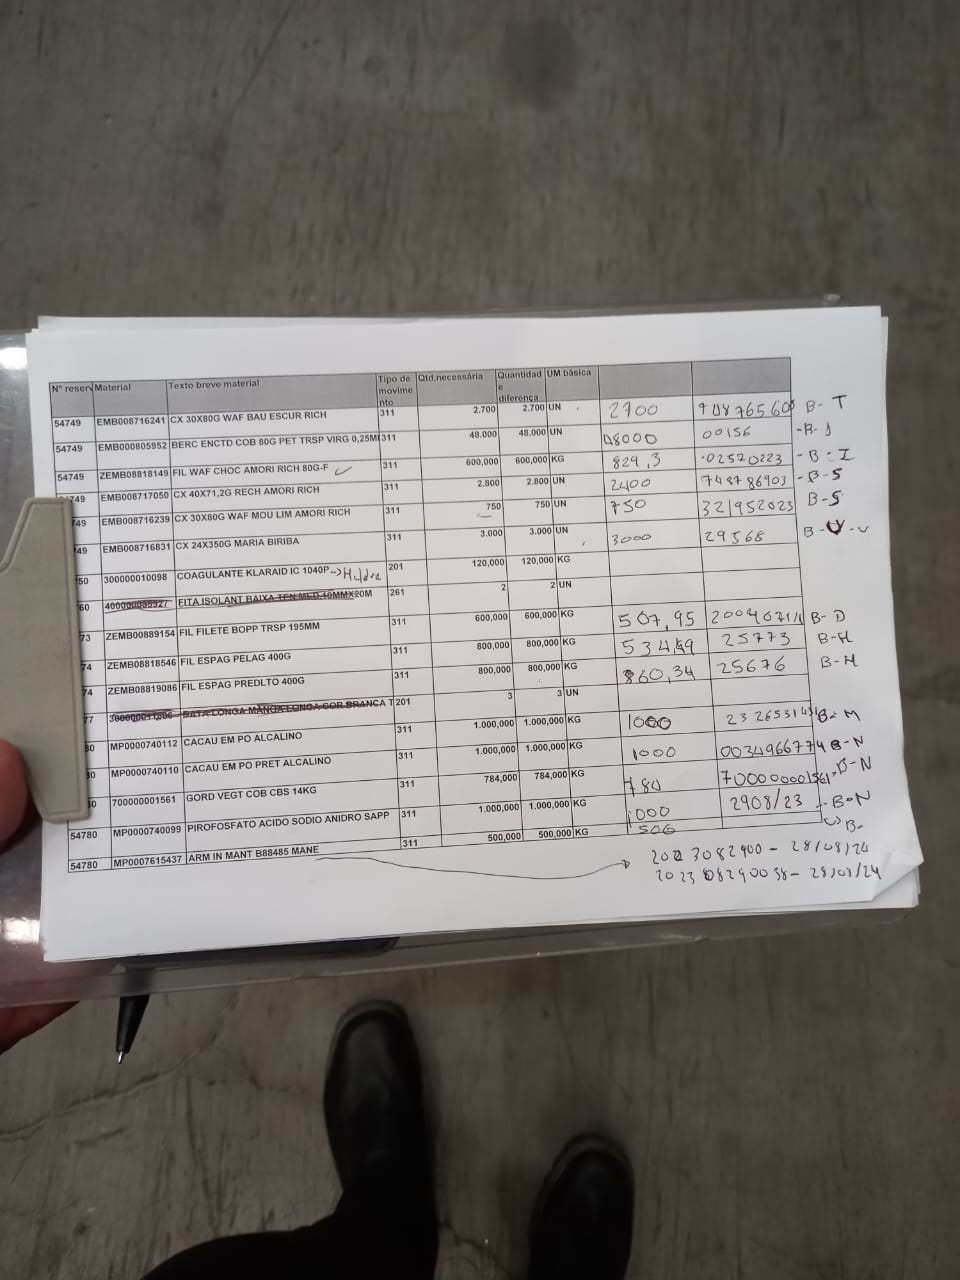 Nº reserv Material Texto breve material Tipo de movime nto Qtd.necessária Quantidad e diferença UM básica
54749 EMB008716241 CX 30X80G WAF BAU ESCUR RICH 311 2.700 2.700 UN 2700 B-T
54749 EMB000805952 BERC ENCTD COB 80G PET TRSP VIRG 0,25MI 311 48.000 48.000 UN 48000 00156
54749 ZEMB08818149 FIL WAF CHOC AMORI RICH 80G-F 311 600,000 600,000 KG 829,3 02520223 -B-I
749 EMB008717050 CX 40X71,2G RECH AMORI RICH 311 2.800 2.800 UN 2400 748786903 -B-S
749 EMB008716239 CX 30X80G WAF MOU LIM AMORI RICH 311 750 750 UN 750 321952023 B-S
49 EMB008716831 CX 24X350G MARIA BIRIBA 311 3.000 3.000 UN 3000 29568
50 300000010098 COAGULANTE KLARAID IC 1040P 201 120,000 120,000 KG
60 FITA ISOLANT BAIXA TEN MED.19MMX20M 261 2 2 UN
73 ZEMB00889154 FIL FILETE BOPP TRSP 195MM 311 600,000 600,000 KG 507,95 B-D
74 ZEMB08818546 FIL ESPAG PELAG 400G 311 800,000 800,000 KG 25773 B-H
74 ZEMB08819086 FIL ESPAG PREDLTO 400G 311 800,000 800,000 KG 860,34 25676 B-H
77 BATA LONGA MANGA LONGA COR BRANCA T 201 3 3 UN
80 MP0000740112 CACAU EM PO ALCALINO 311 1.000,000 1.000,000 KG 1000 B-M
80 MP0000740110 CACAU EM PO PRET ALCALINO 311 1.000,000 1.000,000 KG 1000 0034966774 B-N
80 700000001561 GORD VEGT COB CBS 14KG 311 784,000 784,000 KG 784 700000001561 B-N
54780 MP0000740099 PIROFOSFATO ACIDO SODIO ANIDRO SAPP 311 1.000,000 1.000,000 KG 1000 2908/23 B-N
54780 MP0007615437 ARM IN MANT B88485 MANE 311 500,000 500,000 KG 506 B-
2023082900 - 28/08/24
202308290038 - 28/08/24